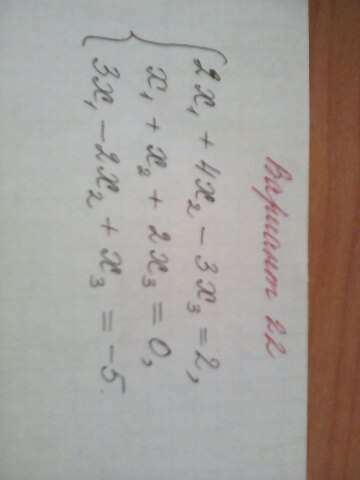 Вариант 22
2x₁ + 4x₂ - 3x₃ = 2,
x₁ + x₂ + 2x₃ = 0,
3x₁ - 2x₂ + x₃ = -5.